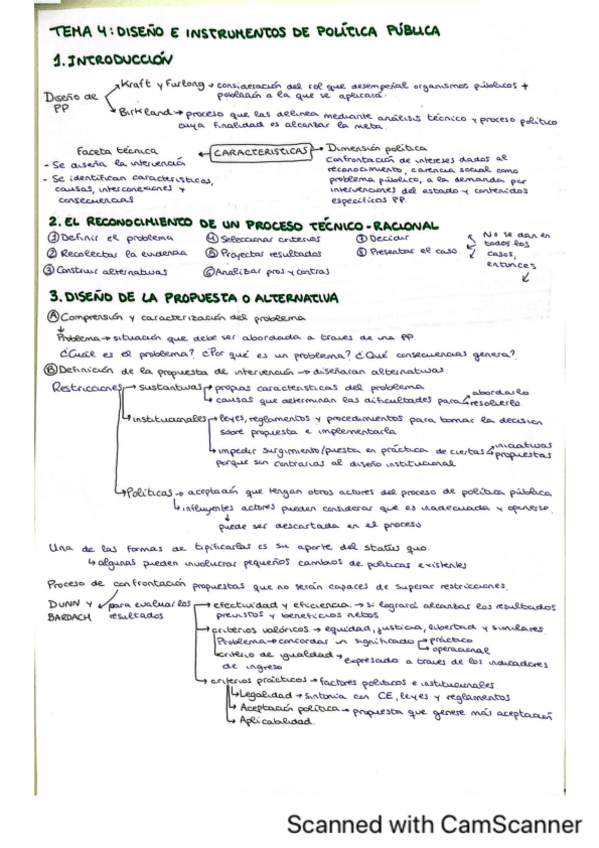 TEMA 4: DISEÑO E INSTRUMENTOS DE POLÍTICA PÚBLICA
1. INTRODUCCIÓN
Diseño de PP
Kraft y Furlong → consideración del rol que desempeñan organismos públicos +
población a la que se aplicará.
Birkland → proceso que las delinea mediante análisis técnico y proceso político
cuya finalidad es alcanzar la meta.
Faceta técnica ← CARACTERISTICAS → Dimensión política
- Se diseña la intervención
- Se identifican características,
causas, interconexiones y
consecuencias
Confrontación de intereses dados al
reconocimiento, carencia social como
problema público, a la demanda por
intervenciones del estado y contenidos
específicos PP.
2. EL RECONOCIMIENTO DE UN PROCESO TÉCNICO-RACIONAL
① Definir el problema ④ Seleccionar criterios ⑦ Decidir
② Recolectar la evidencia ⑤ Proyectar resultados ⑧ Presentar el caso.
③ Construir alternativas ⑥ Analizar pros y contras
No se dan en
todos los
casos,
entonces
3. DISEÑO DE LA PROPUESTA O ALTERNATIVA
Ⓐ Comprensión y caracterización del problema
↓
Problema → situación que debe ser abordada a traves de una PP.
¿Cuál es el problema? ¿Por qué es un problema? ¿Qué consecuencias genera?
Ⓑ Definición de la propuesta de intervención → diseñaran alternativas.
Restricciones → sustantivas → propias características del problema
→ causas que determinan las dificultades para → abordarlo
→ resolverlo
→ institucionales → leyes, reglamentos y procedimientos para tomar la decisión
sobre propuesta e implementarla
→ impedir surgimiento/puesta en práctica de ciertas → iniciativas
→ propuestas
porque son contrarias al diseño institucional
→ Políticas → aceptación que tengan otros actores del proceso de política pública
↳ influyentes actores pueden considerar que es inadecuada y oponerse.
↓
puede ser descartada en el proceso
Una de las formas de tipificarlas es su aporte del status quo.
↳ algunas pueden involucrar pequeños cambios de políticas existentes
Proceso de confrontación propuestas que no serán capaces de superar restricciones.
DUNN Y BARDACH
para evaluar los resultados
→ efectividad y eficiencia → si logrará alcanzar los resultados
previstos y beneficios netos
→ criterios valóricos → equidad, justicia, libertad y similares
Problema → concordar un significado → práctico
→ operacional
criterio de igualdad → expresado a traves de los indicadores
de ingreso
→ criterios prácticos → factores políticos e institucionales
↳ Legalidad → sintonía con CE, leyes y reglamentos
↳ Aceptación política → propuesta que genere más aceptación
↳ Aplicabilidad.
Scanned with CamScanner